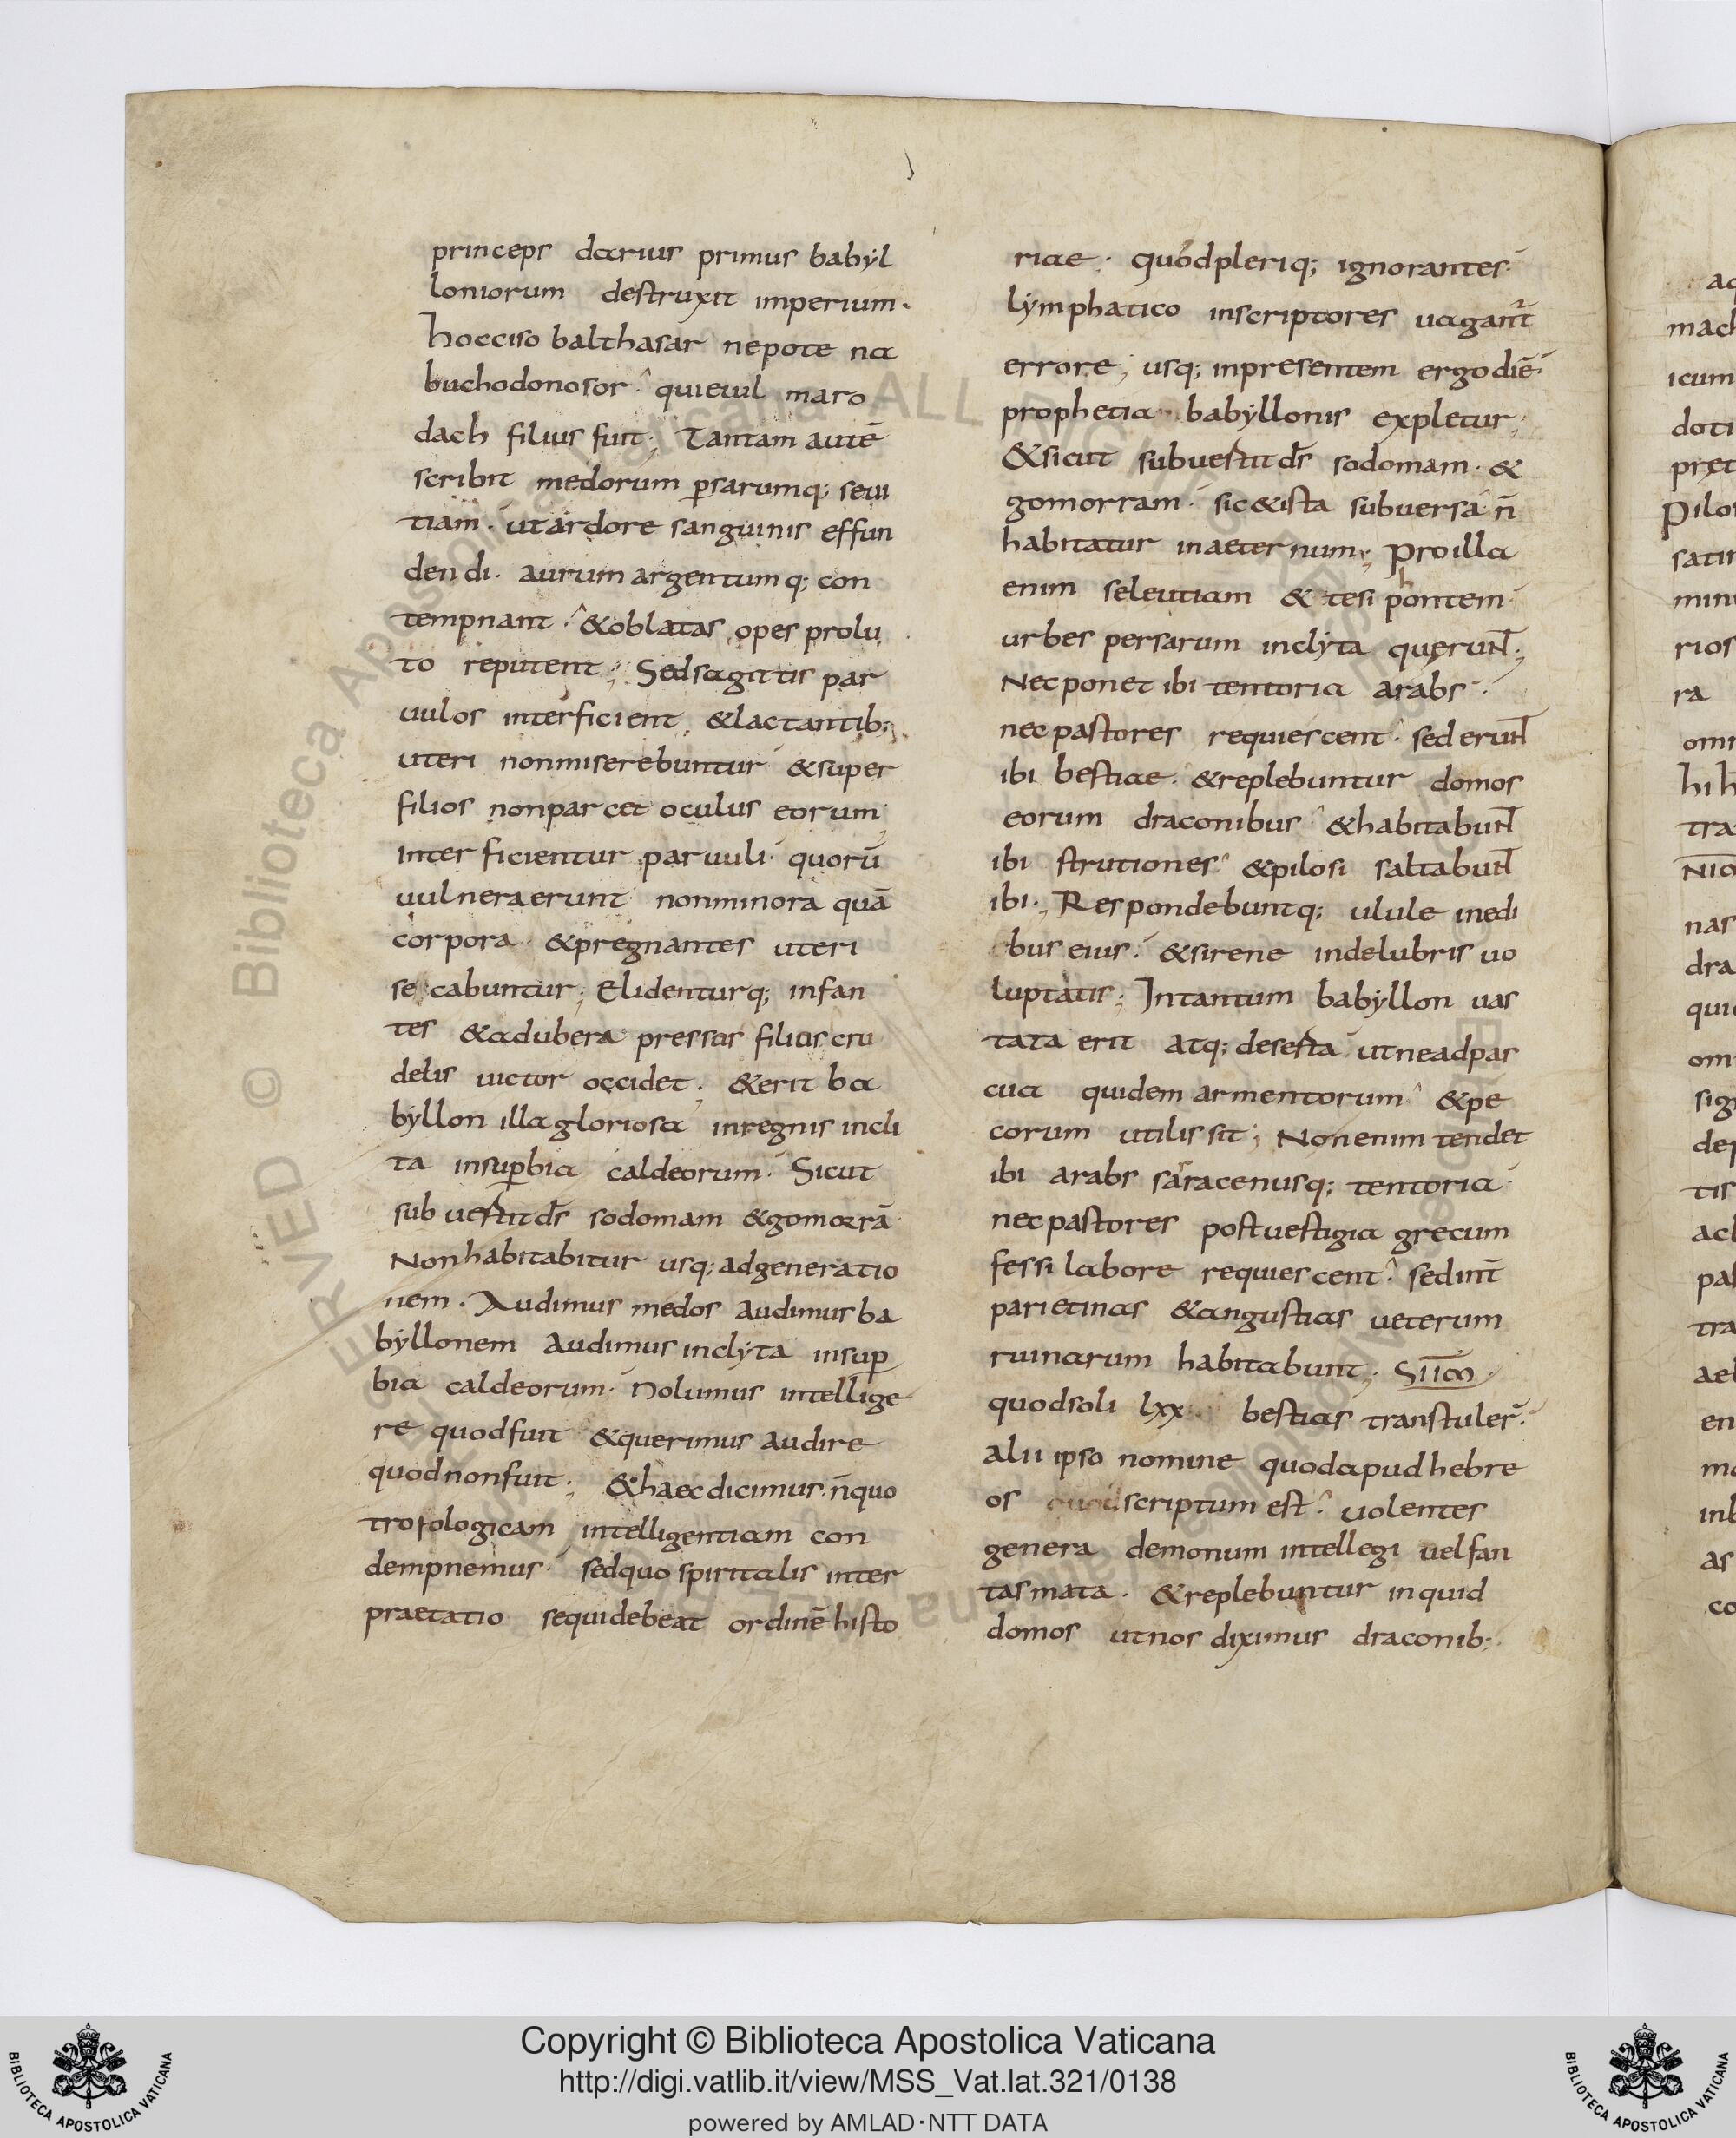 princeps darius primus babyl
loniorum destruxit imperium.
hocciso balthasar nepote na
buchodonosor. quieuil maro
dach filius fuit; Tantam autē
scribit medorum ꝑsarumq; seui
tiam. ut ardore sanguinis effun
dendi. aurum argentumq; con
tempnant. & oblatas opes prolu
to reputent; Sed sagittis par
uulos interficient, & lactantib;
uteri non miserebuntur & super
filios non parcet oculus eorum
Interficientur paruuli quorū
uulnera erunt non minora quā
corpora & pregnantes uteri
secabuntur; Elidenturq; infan
tes & ad ubera pressos filius cru
delis uictor occidet. & erit ba
byllon illa gloriosa in regnis incli
ta in suꝑbia caldeorum. Sicut
subuertit d̄s sodomam & gomorrā
Non habitabitur usq; ad generatio
nem. Audimus medos audimus ba
byllonem audimus inclyta in suꝑ
bia caldeorum. Nolumus intellige
re quod fuit & querimus audire
quod non fuit; & haec dicimus. n̄ quo
trofologicam intelligentiam con
dempnemus. sed quo spiritalis inter
praetatio sequi debeat ordinē histo
riae. quod pleriq; ignorantes.
lymphatico in scriptores uagant̄
errore; usq; in presentem ergo diē.
prophetia babyllonis expletur;
& sicut subuertit d̄s sodomam. &
gomorram. sic & ista subuersa n̄
habitatur in aeternum; Pro illa
enim seleutiam & tesiphontem
urbes persarum inclyta querunt;
Nec ponet ibi tentoria arabs.
nec pastores requiescent. sed erunt
ibi bestiae. & replebuntur domos
eorum draconibus & habitabunt
ibi strutiones & pilosi saltabunt
ibi; Respondebuntq; ulule in edi
bus eius. & sirene in delubris uo
luptatis; In tantum babyllon uas
tata erit atq; deserta ut ne ad pas
cua quidem armentorum & pe
corum utilis sit; Non enim tendet
ibi arabs saracenusq; tentoria.
nec pastores post uestigia grecum
fessi labore requiescent. sed int̄
parietinas & angustias ueterum
ruinarum habitabunt; Siim.
quod soli lxx bestias transtuler̄.
alii ipso nomine quod apud hebre
os scriptum est. uolentes
genera demonum intellegi uel fan
tasmata. & replebuntur inquid
domos ut nos diximus draconib;
Copyright © Biblioteca Apostolica Vaticana
http://digi.vatlib.it/view/MSS_Vat.lat.321/0138
powered by AMLAD·NTT DATA
BIBLIOTECA APOSTOLICA VATICANA
BIBLIOTECA APOSTOLICA VATICANA